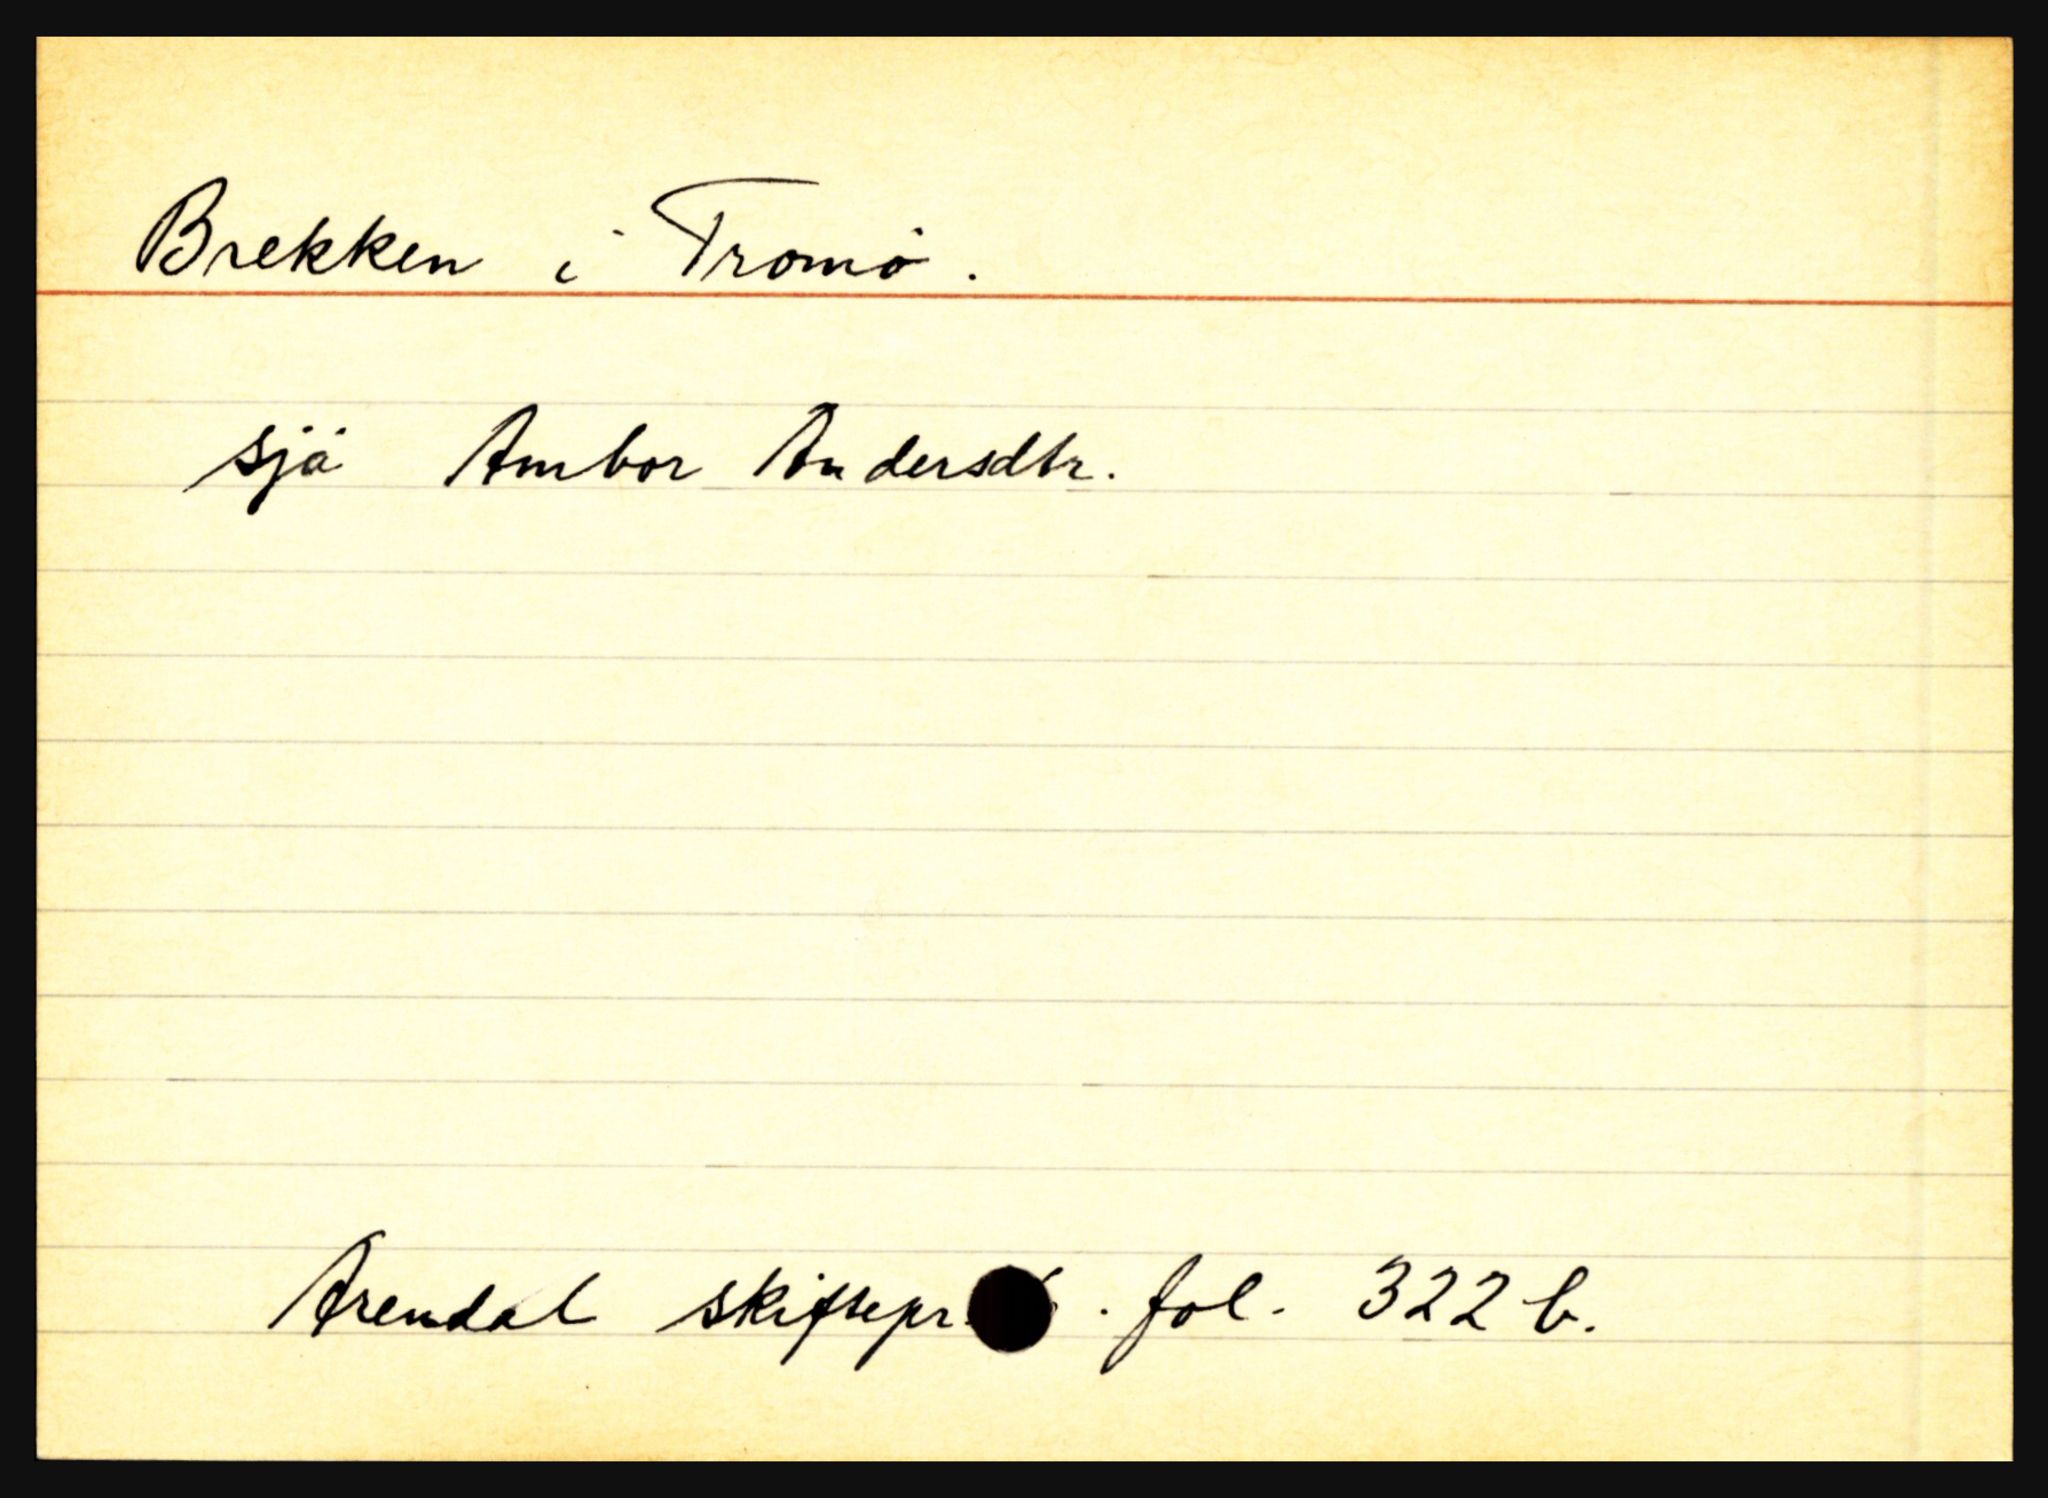 Brekken i Tromö.
sjå Ambor Andersdtr.
Arendal skiftepr. . fol. 322 b.